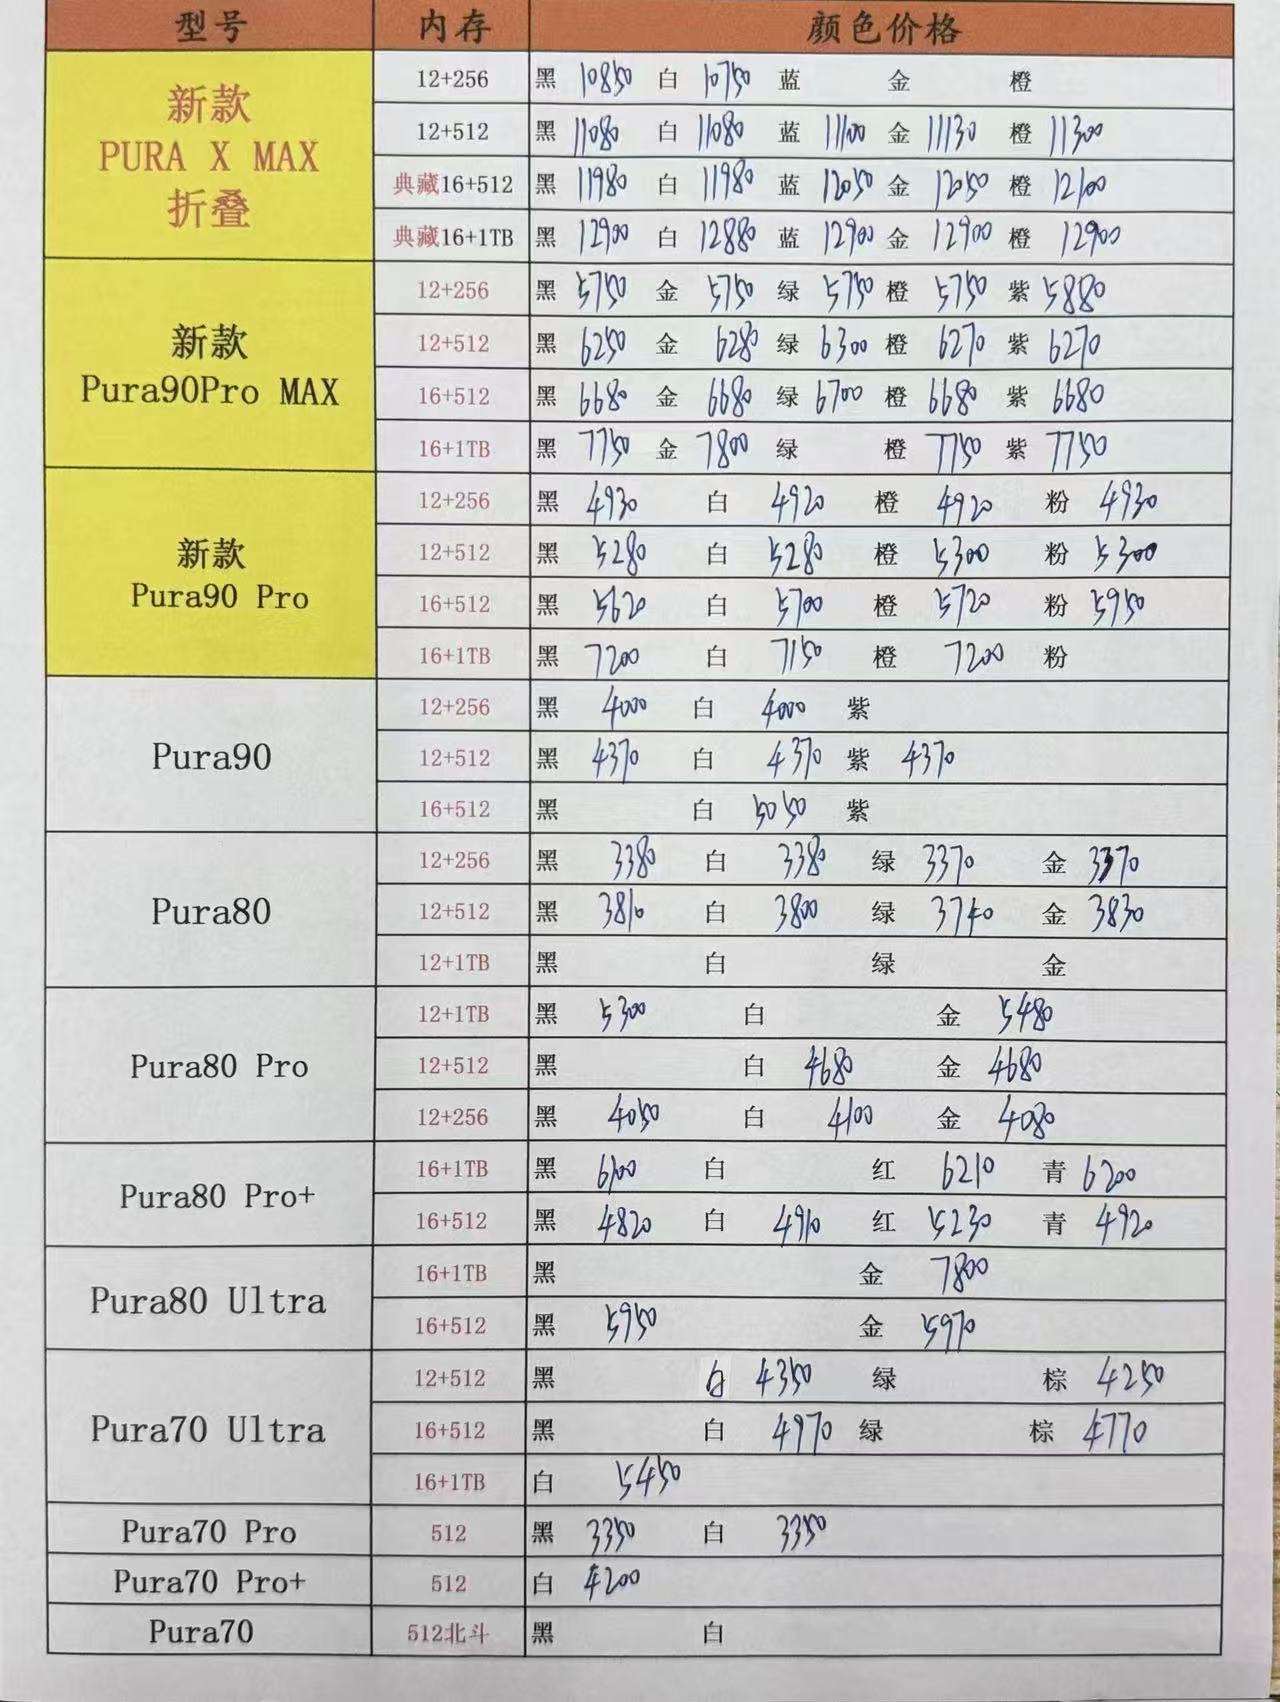 型号 内存 颜色价格
新款
PURA X MAX
折叠
12+256 黑 10850 白 10750 蓝 金 橙
12+512 黑 11080 白 11080 蓝 11100 金 11130 橙 11300
典藏16+512 黑 11980 白 11980 蓝 12050 金 12050 橙 12100
典藏16+1TB 黑 12900 白 12880 蓝 12900 金 12900 橙 12900
新款
Pura90Pro MAX
12+256 黑 5750 金 5750 绿 5750 橙 5750 紫 5880
12+512 黑 6250 金 6280 绿 6300 橙 6270 紫 6270
16+512 黑 6680 金 6680 绿 6700 橙 6680 紫 6680
16+1TB 黑 7750 金 7800 绿 橙 7750 紫 7750
新款
Pura90 Pro
12+256 黑 4930 白 4920 橙 4920 粉 4930
12+512 黑 5280 白 5280 橙 5300 粉 5300
16+512 黑 5620 白 5700 橙 5720 粉 5950
16+1TB 黑 7200 白 7150 橙 7200 粉
Pura90
12+256 黑 4000 白 4000 紫
12+512 黑 4370 白 4370 紫 4370
16+512 黑 白 5050 紫
Pura80
12+256 黑 3380 白 3380 绿 3370 金 3370
12+512 黑 3810 白 3800 绿 3740 金 3830
12+1TB 黑 白 绿 金
Pura80 Pro
12+1TB 黑 5300 白 金 5480
12+512 黑 白 4680 金 4680
12+256 黑 4050 白 4100 金 4080
Pura80 Pro+
16+1TB 黑 6100 白 红 6210 青 6200
16+512 黑 4820 白 4910 红 5230 青 4920
Pura80 Ultra
16+1TB 黑 金 7800
16+512 黑 5950 金 5970
Pura70 Ultra
12+512 黑 白 4350 绿 棕 4250
16+512 黑 白 4970 绿 棕 4770
16+1TB 白 5450
Pura70 Pro 512 黑 3350 白 3350
Pura70 Pro+ 512 白 4200
Pura70 512北斗 黑 白